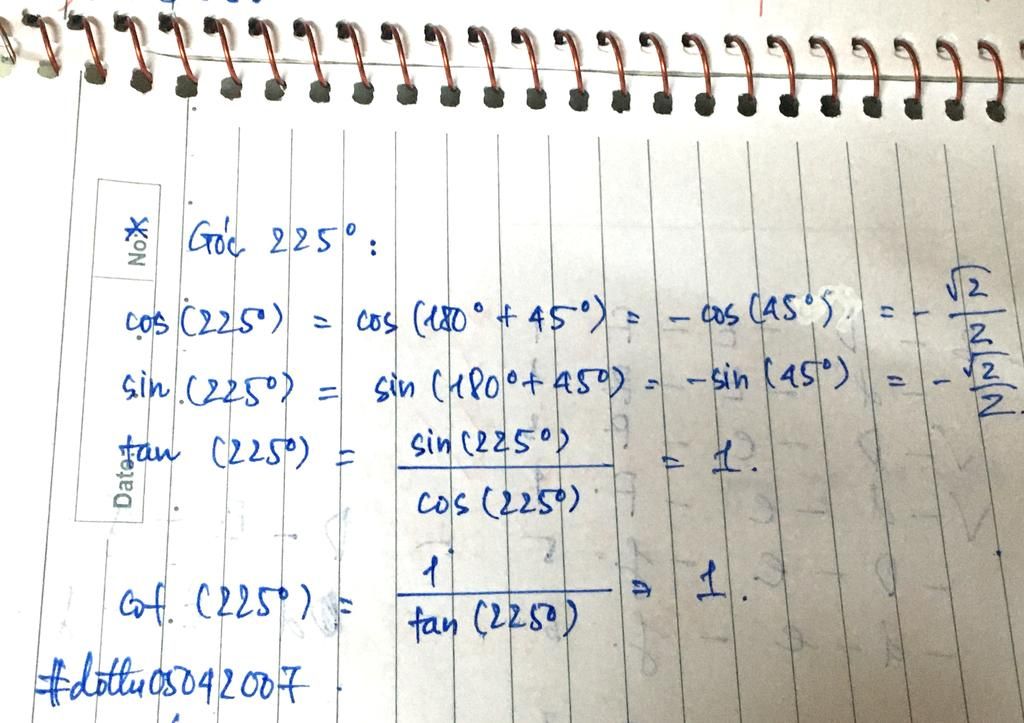 No:
* Góc 225° :
cos (225°) = cos (180° + 45°) = - cos (45°) = - √2/2
sin (225°) = sin (180° + 45°) = - sin (45°) = - √2/2.
Date
tan (225°) = sin (225°)/cos (225°) = 1.
cot (225°) = 1/tan (225°) = 1.
#dottu05042007